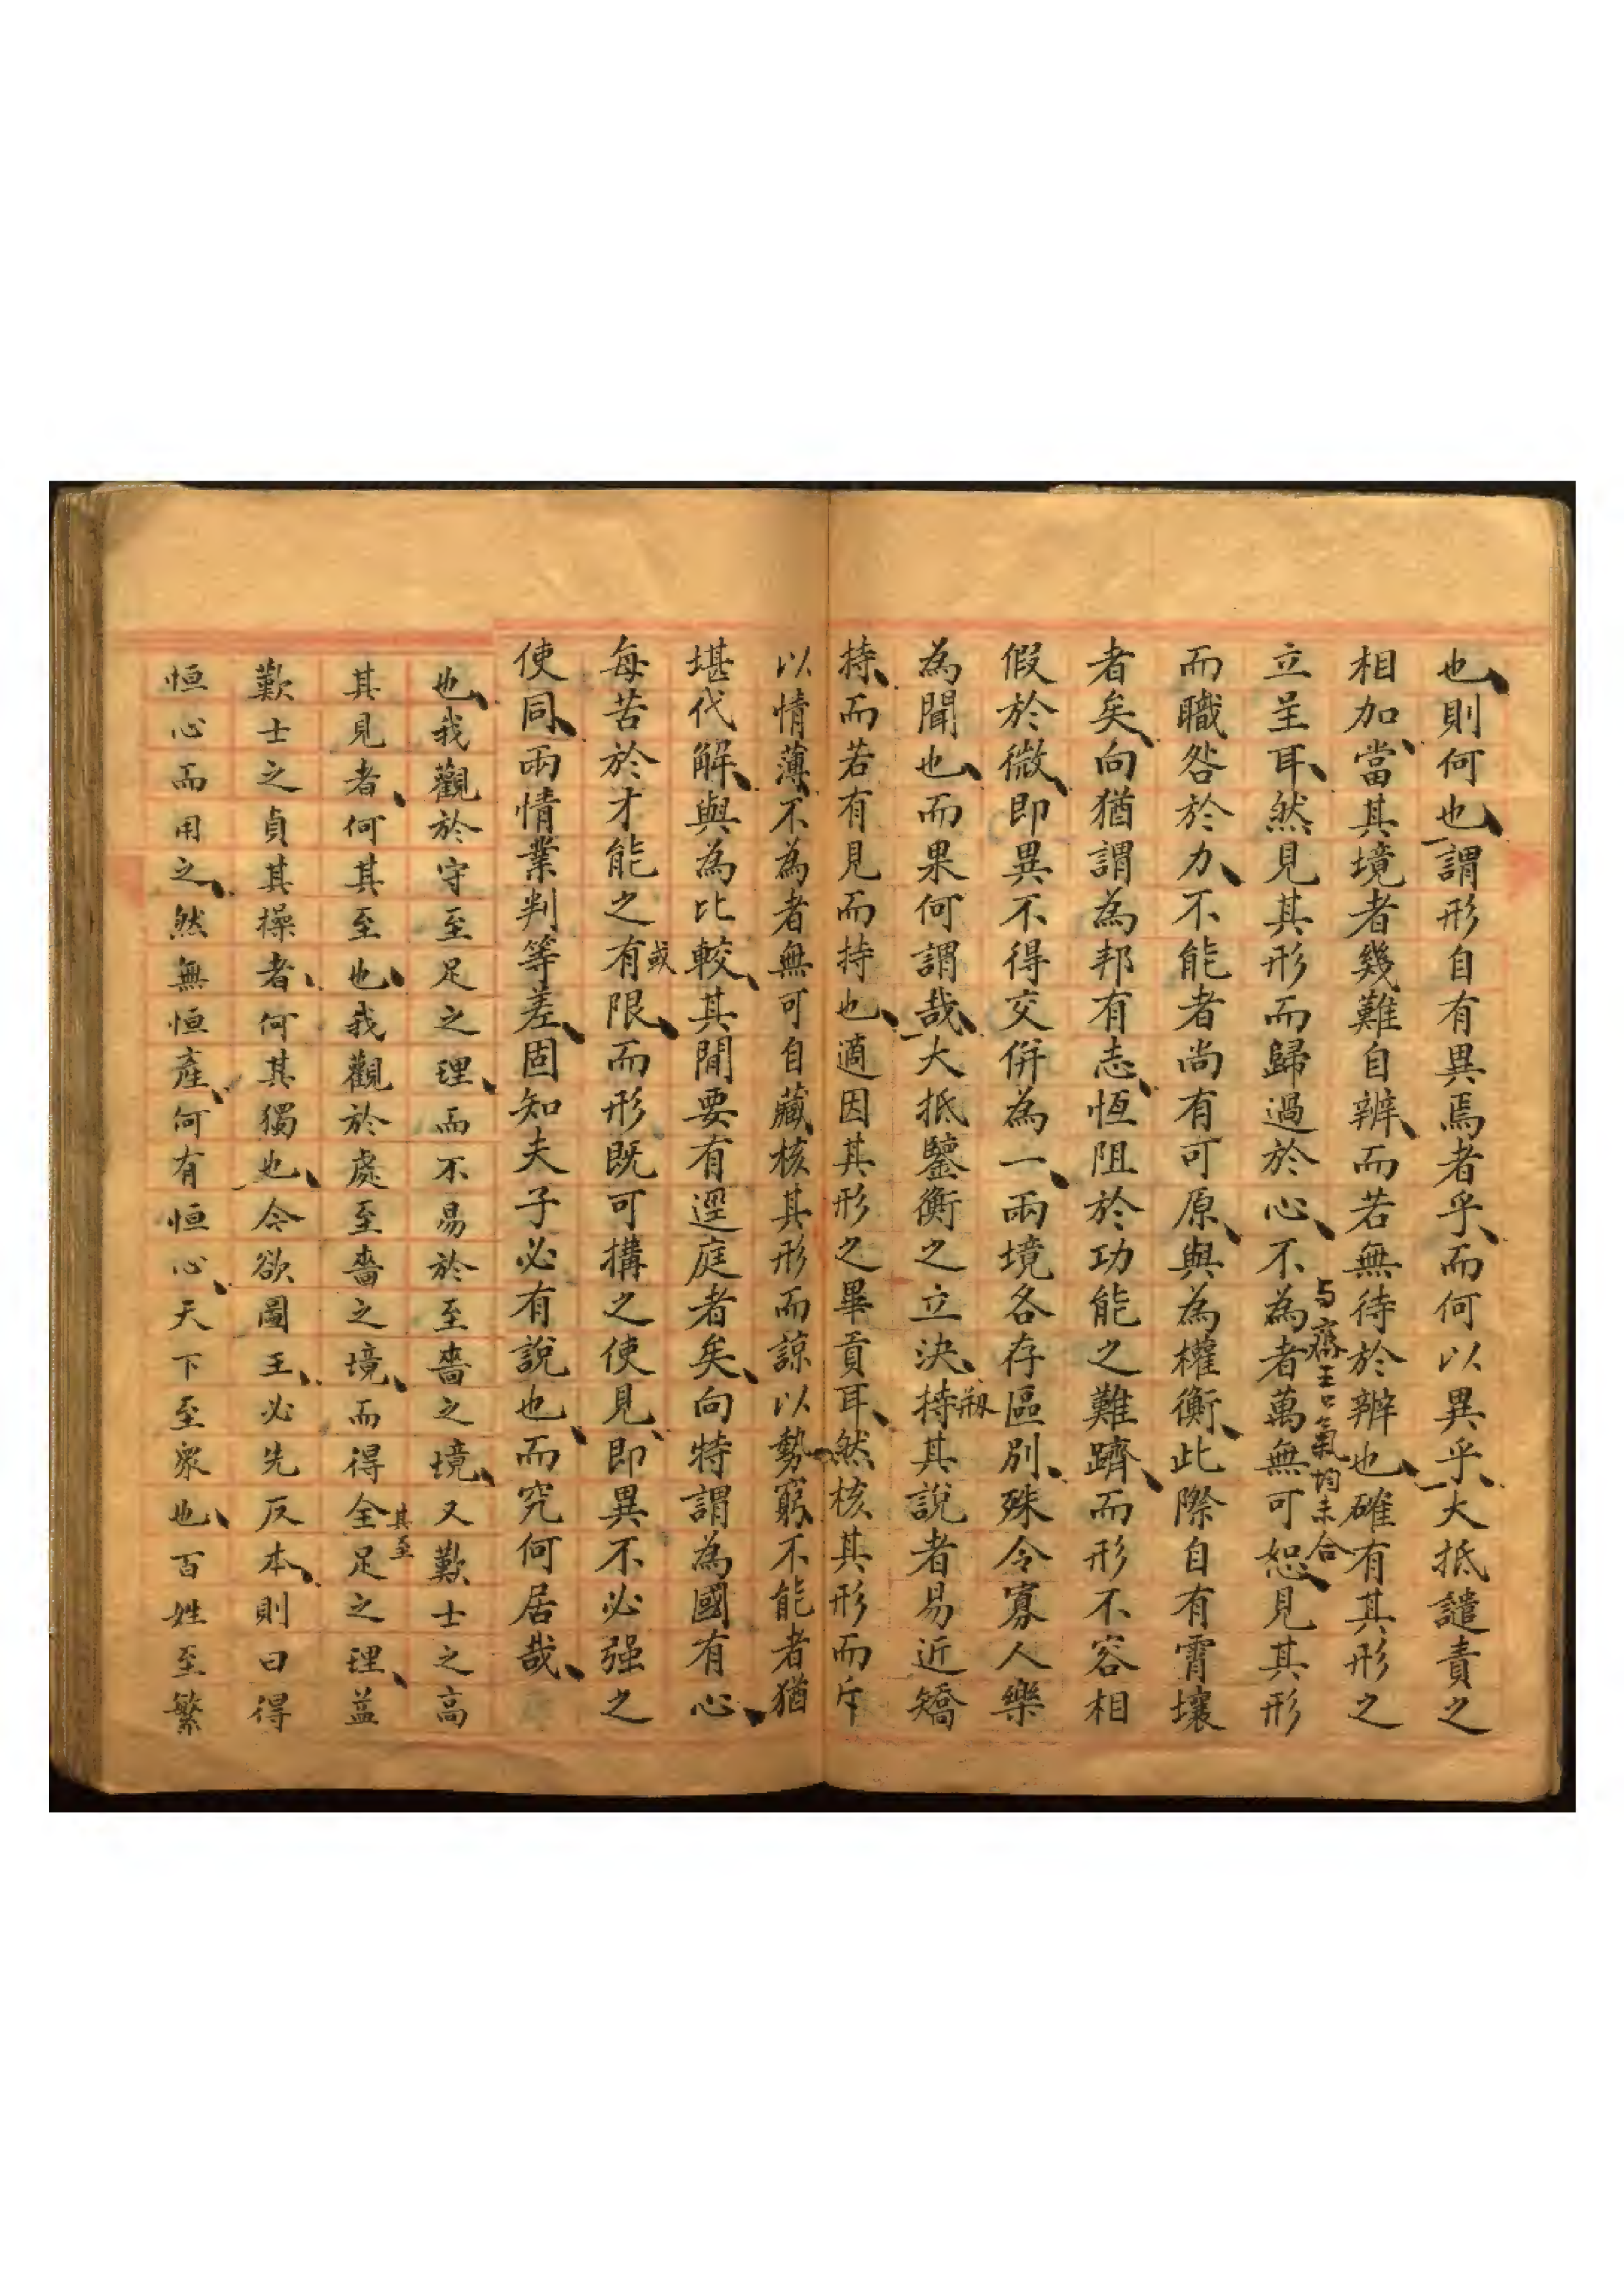 也則何也謂形自有異焉者乎而何以異乎大抵譴責之
相加當其境者幾難自辨而若無待於辨也確有其形之
与齊王口氣均未合
立呈耳然見其形而歸過於心不為者萬無可恕見其形
而職咎於力不能者尚有可原與為權衡此際自有霄壤
者矣向猶謂為邦有志恆阻於功能之難躋而形不容相
假於微即異不得交併為一兩境各存區別殊令寡人樂
為聞也而果何謂哉大抵鑒衡之立決持其說者易近矯
持而若有見而持也適因其形之畢貢耳然核其形而斥
以情薄不為者無可自藏核其形而諒以勢窮不能者猶
堪代解與為比較其間要有逕庭者矣向特謂為國有心
每苦於才能之有限而形既可搆之使見即異不必强之
或
使同兩情業判等差固知夫子必有說也而究何居哉
也我觀於守至足之理而不易於至嗇之境又歎士之高
其見者何其至也我觀於處至嗇之境而得全足之理益
其至
歎士之貞其操者何其獨也今欲圖王必先反本則曰得
恒心而用之然無恒產何有恒心天下至眾也百姓至繁